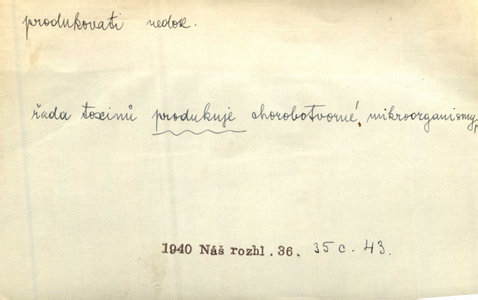 produkovati nedok.
řada toxinů produkuje chorobotvorné, mikroorganismy,
1940 Náš rozhl. 36. 35 c. 43.